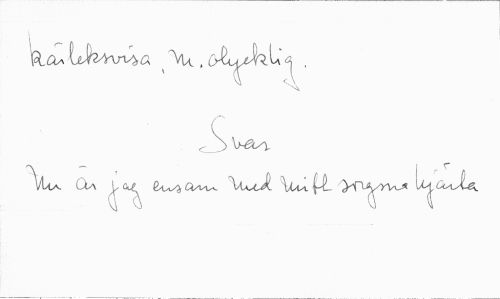 kärleksvisa, m. olycklig.
Svar
Nu är jag ensam med mitt sorgsna hjärta